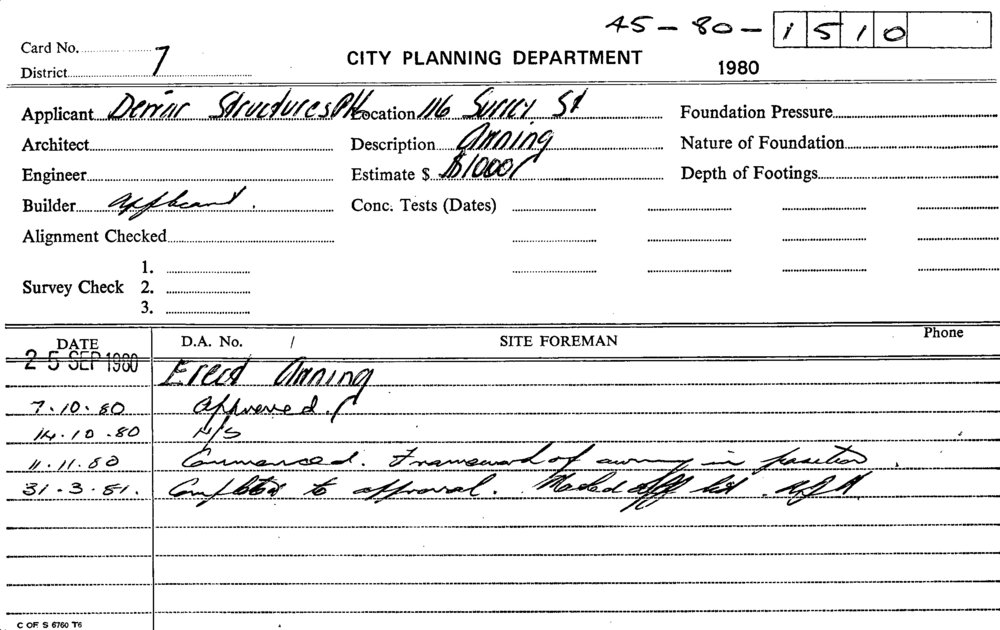 45-80-1510
Card No. 7
District
CITY PLANNING DEPARTMENT
1980
Applicant Demar Structures P/L Location 116 Surrey St Foundation Pressure
Architect Description Awning Nature of Foundation
Engineer Estimate $ $1000 Depth of Footings
Builder applicant. Conc. Tests (Dates)
Alignment Checked
1.
Survey Check 2.
3.
DATE D.A. No. / SITE FOREMAN Phone
25 SEP 1980 Erect Awning
7.10.80 Approved.
14.10.80 N/S
11.11.80 Commenced. Framework of awning in position.
31.3.81. Completed to approval. Marked off list.
C OF S 6760 T6